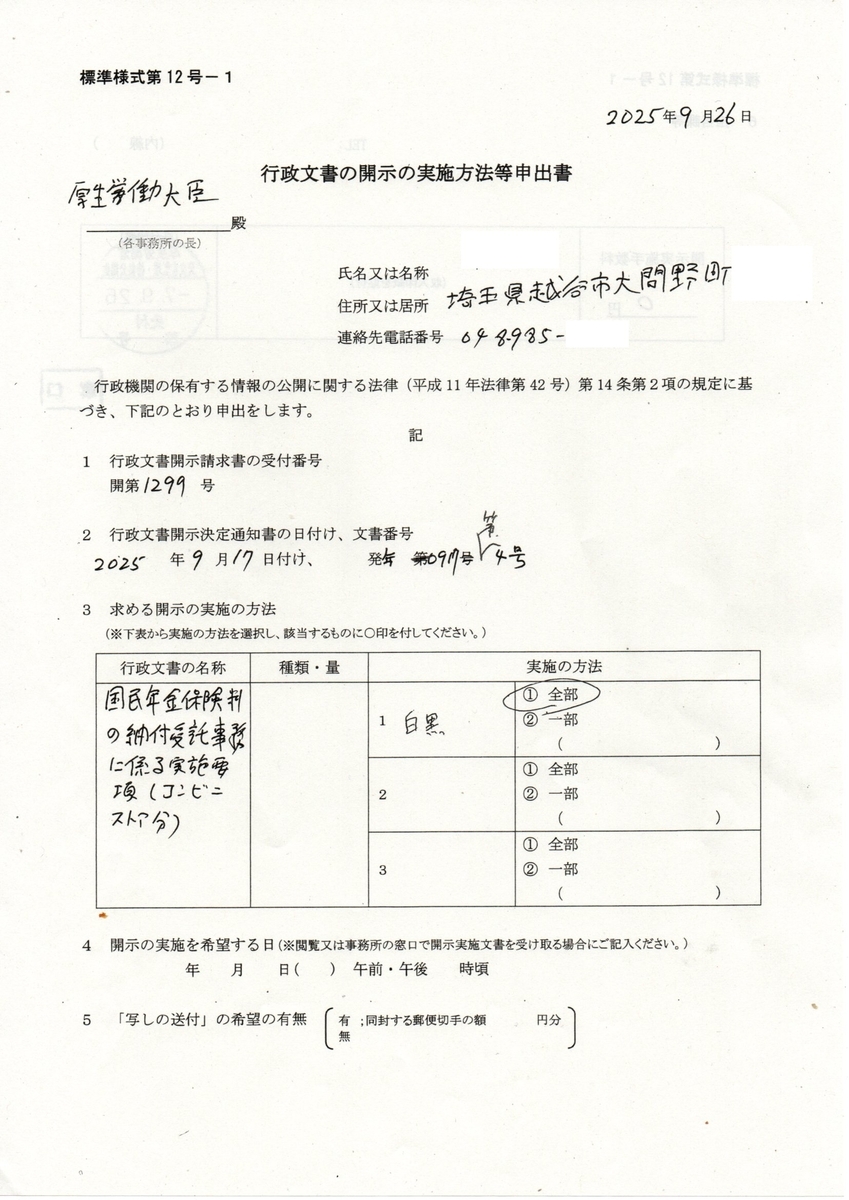 標準様式第12号－1
2025年9月26日
行政文書の開示の実施方法等申出書
厚生労働大臣
殿
（各事務所の長）
氏名又は名称
住所又は居所 埼玉県越谷市大間野町
連絡先電話番号 048-985-
行政機関の保有する情報の公開に関する法律（平成11年法律第42号）第14条第2項の規定に基
づき、下記のとおり申出をします。
記
1 行政文書開示請求書の受付番号
開第1299号
2 行政文書開示決定通知書の日付け、文書番号
2025年9月17日付け、 発年0917第4号
3 求める開示の実施の方法
（※下表から実施の方法を選択し、該当するものに〇印を付してください。）
行政文書の名称 種類・量 実施の方法
国民年金保険料
の納付受託事務
に係る実施要
項（コンビニ
ストア分）
1 白黒
① 全部
② 一部
（ ）
2
① 全部
② 一部
（ ）
3
① 全部
② 一部
（ ）
4 開示の実施を希望する日（※閲覧又は事務所の窓口で開示実施文書を受け取る場合にご記入ください。）
年 月 日（ ） 午前・午後 時頃
5 「写しの送付」の希望の有無
有 ；同封する郵便切手の額 円分
無